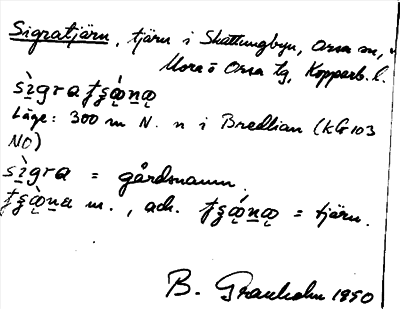 Sigratjärn, tjärn i Skattungbyn, Orsa sn,
Mora o Orsa tg, Kopparb. l.
sìgra
Läge: 300 m N. n i Bredlian (KG 103
NO)
sìgra = gårdsnamn.
m., ack. = tjärn.
B. Granholm 1950